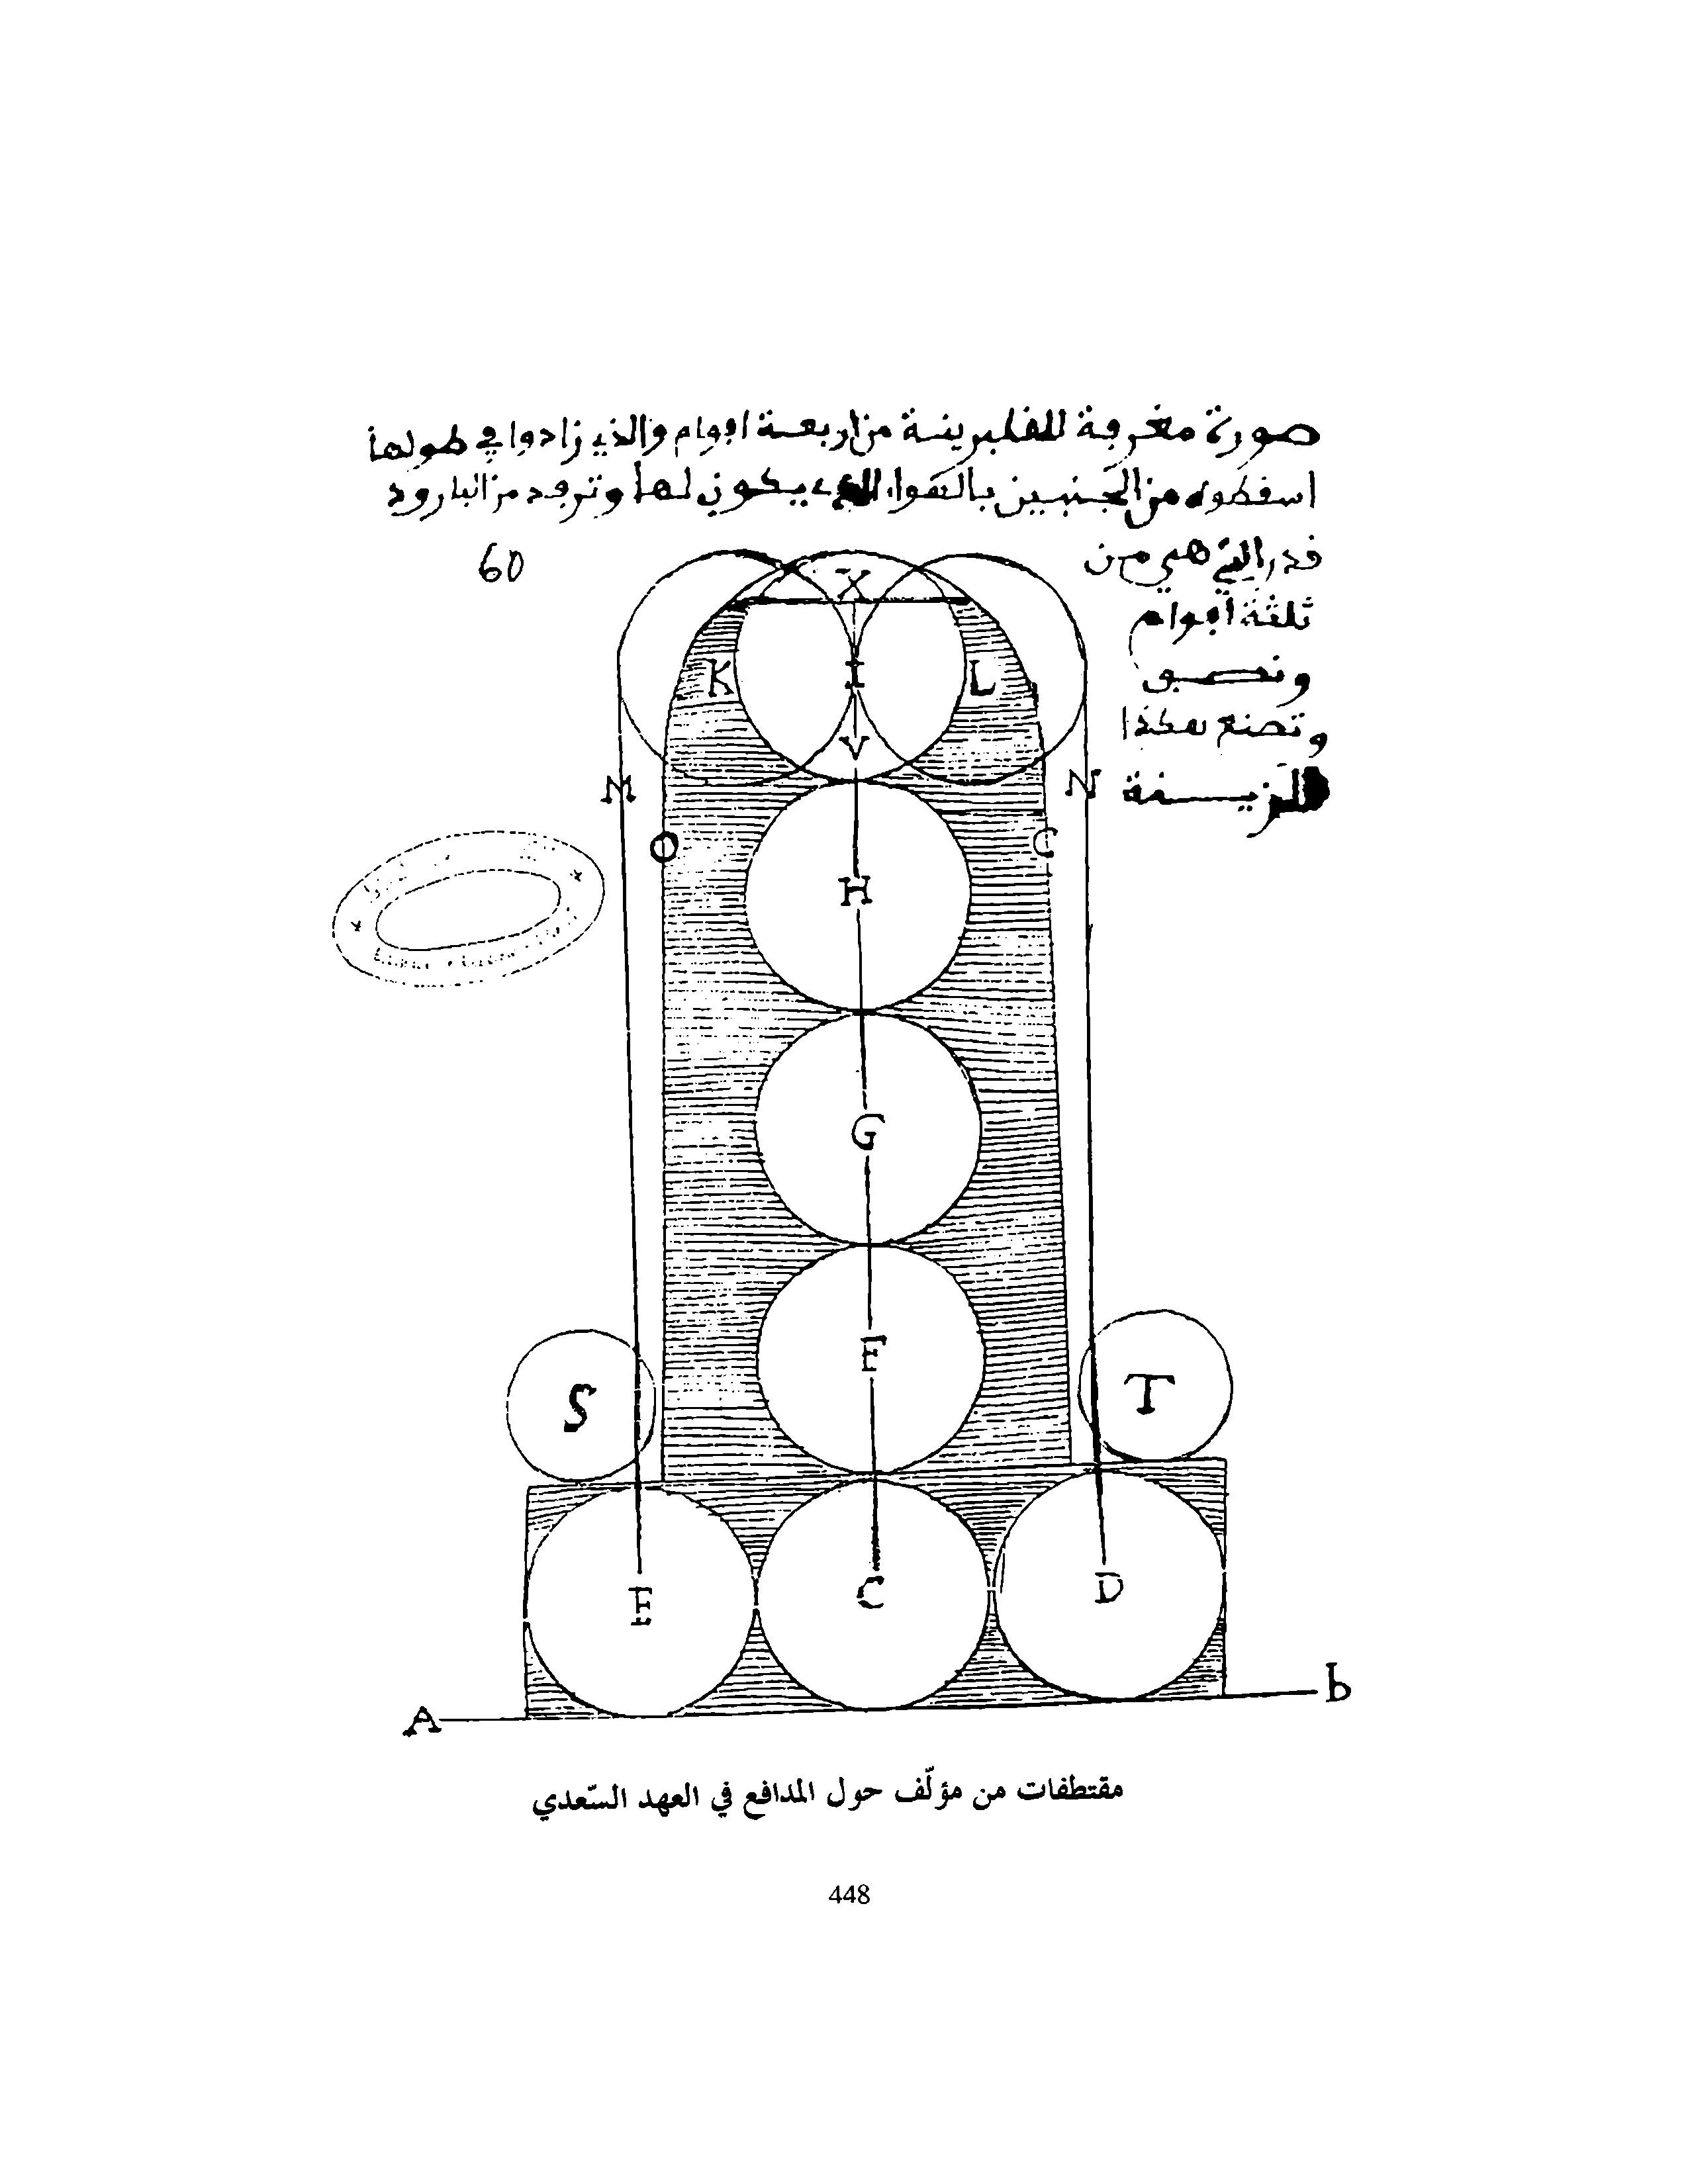 صورة مغرفة للقلبرينة من اربعة افوام والذي زادوا في طولها
اسقطوه من الجنبين بالسوا الذي يكون لها وترفد من البارود
قدر التي هي من
60
ثلثة أفوام
ونصف
وتصنع هكذا
X
K I L
V
M N
O C
H
G
F
S T
E C D
A b
مقتطفات من مؤلّف حول المدافع في العهد السّعدي
448